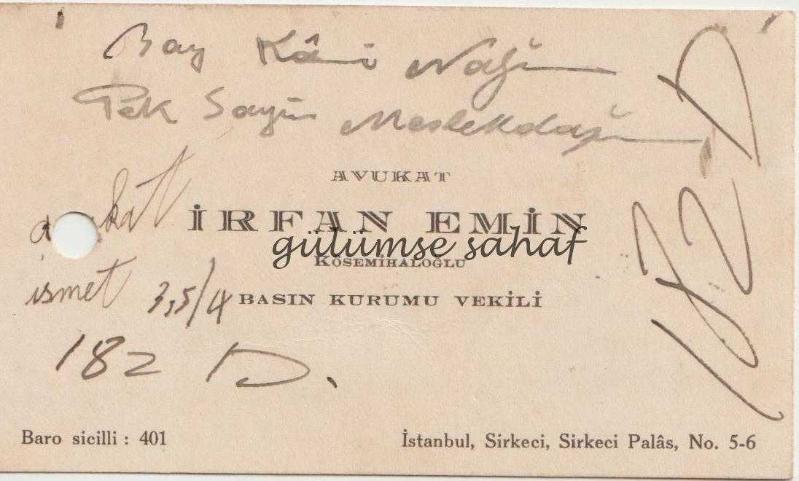 Bay Kâni Nağı
Pek Sayın Meslekdaşım
AVUKAT
avukat
İRFAN EMİN
gülümse sahaf
KÖSEMİHALOĞLU
ismet 3,5/4
BASIN KURUMU VEKİLİ
182 D.
182 D
Baro sicilli : 401
İstanbul, Sirkeci, Sirkeci Palâs, No. 5-6